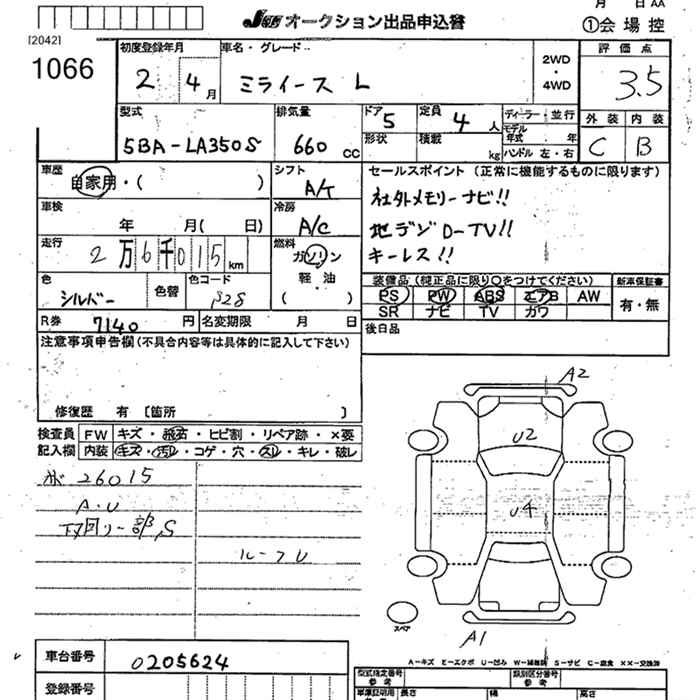 月 日 AA
JU オークション出品申込書
①会場控
[2042]
1066
初度登録年月
車名・グレード
2WD
・
4WD
評価点
2 4月
ミライース L
3.5
型式
排気量
ドア
定員
ディーラー・並行
外装
内装
5BA-LA350S
660 cc
5
4 人
モデル年式 年
C
B
形状
積載 kg
ハンドル 左・右
車歴
自家用・( )
シフト
A/T
セールスポイント (正常に機能するものに限ります)
社外メモリーナビ!!
車検
年 月( 日)
冷房
A/C
地デジ D-TV!!
走行
2万6千015km
燃料
ガソリン
キーレス!!
色
シルバー
色替
色コード
S28
軽・油
( )
装備品(純正品に限り○をつけてください)
新車保証書
PS PW ABS エアB AW
有・無
SR ナビ TV カワ
R券 7140 円
名変期限 月 日
後日品
注意事項申告欄(不具合内容等は具体的に記入して下さい)
修復歴 有 [箇所 ]
検査員
記入欄
FW キズ・飛石・ヒビ割・リペア跡・×要
内装 キズ・汚レ・コゲ・穴・スレ・キレ・破レ
26015
A.U
下回り一部S
ルーフU
A2
U2
U4
A1
スペア
車台番号
0205624
登録番号
A-キズ E-エクボ U-凹み W-補修跡 S-サビ C-腐食 XX-交換済
型式指定番号
参考
類別区分番号
参考
長さ
幅
高さ